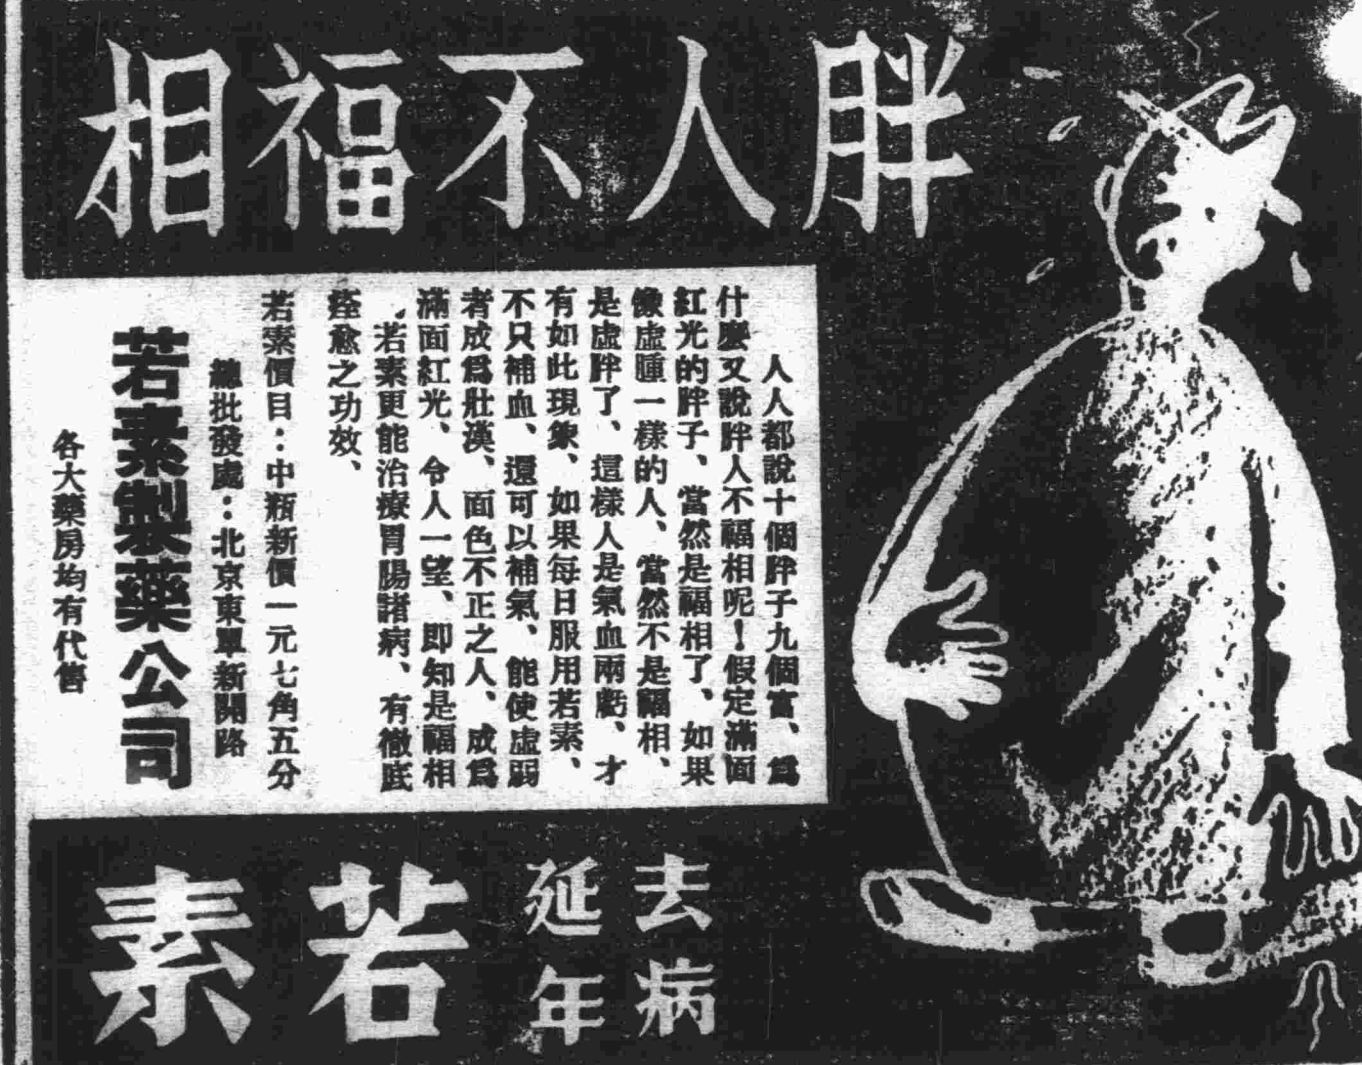 胖人不福相
人人都說十個胖子九個富、爲
什麼又說胖人不福相呢！假定滿面
紅光的胖子、當然是福相了、如果
像虛腫一樣的人、當然不是福相、
是虛胖了、這樣人是氣血兩虧、才
有如此現象、如果每日服用若素、
不只補血、還可以補氣、能使虛弱
者成爲壯漢、面色不正之人、成爲
滿面紅光、令人一望、即知是福相
、若素更能治療胃腸諸病、有徹底
痊愈之功效、
若素價目：中瓶新價一元七角五分
總批發處：北京東單新開路
若素製藥公司
各大藥房均有代售
去病
延年
若素